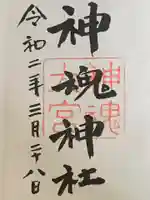 神魂神社
神魂
大宮
令和二年三月二十八日